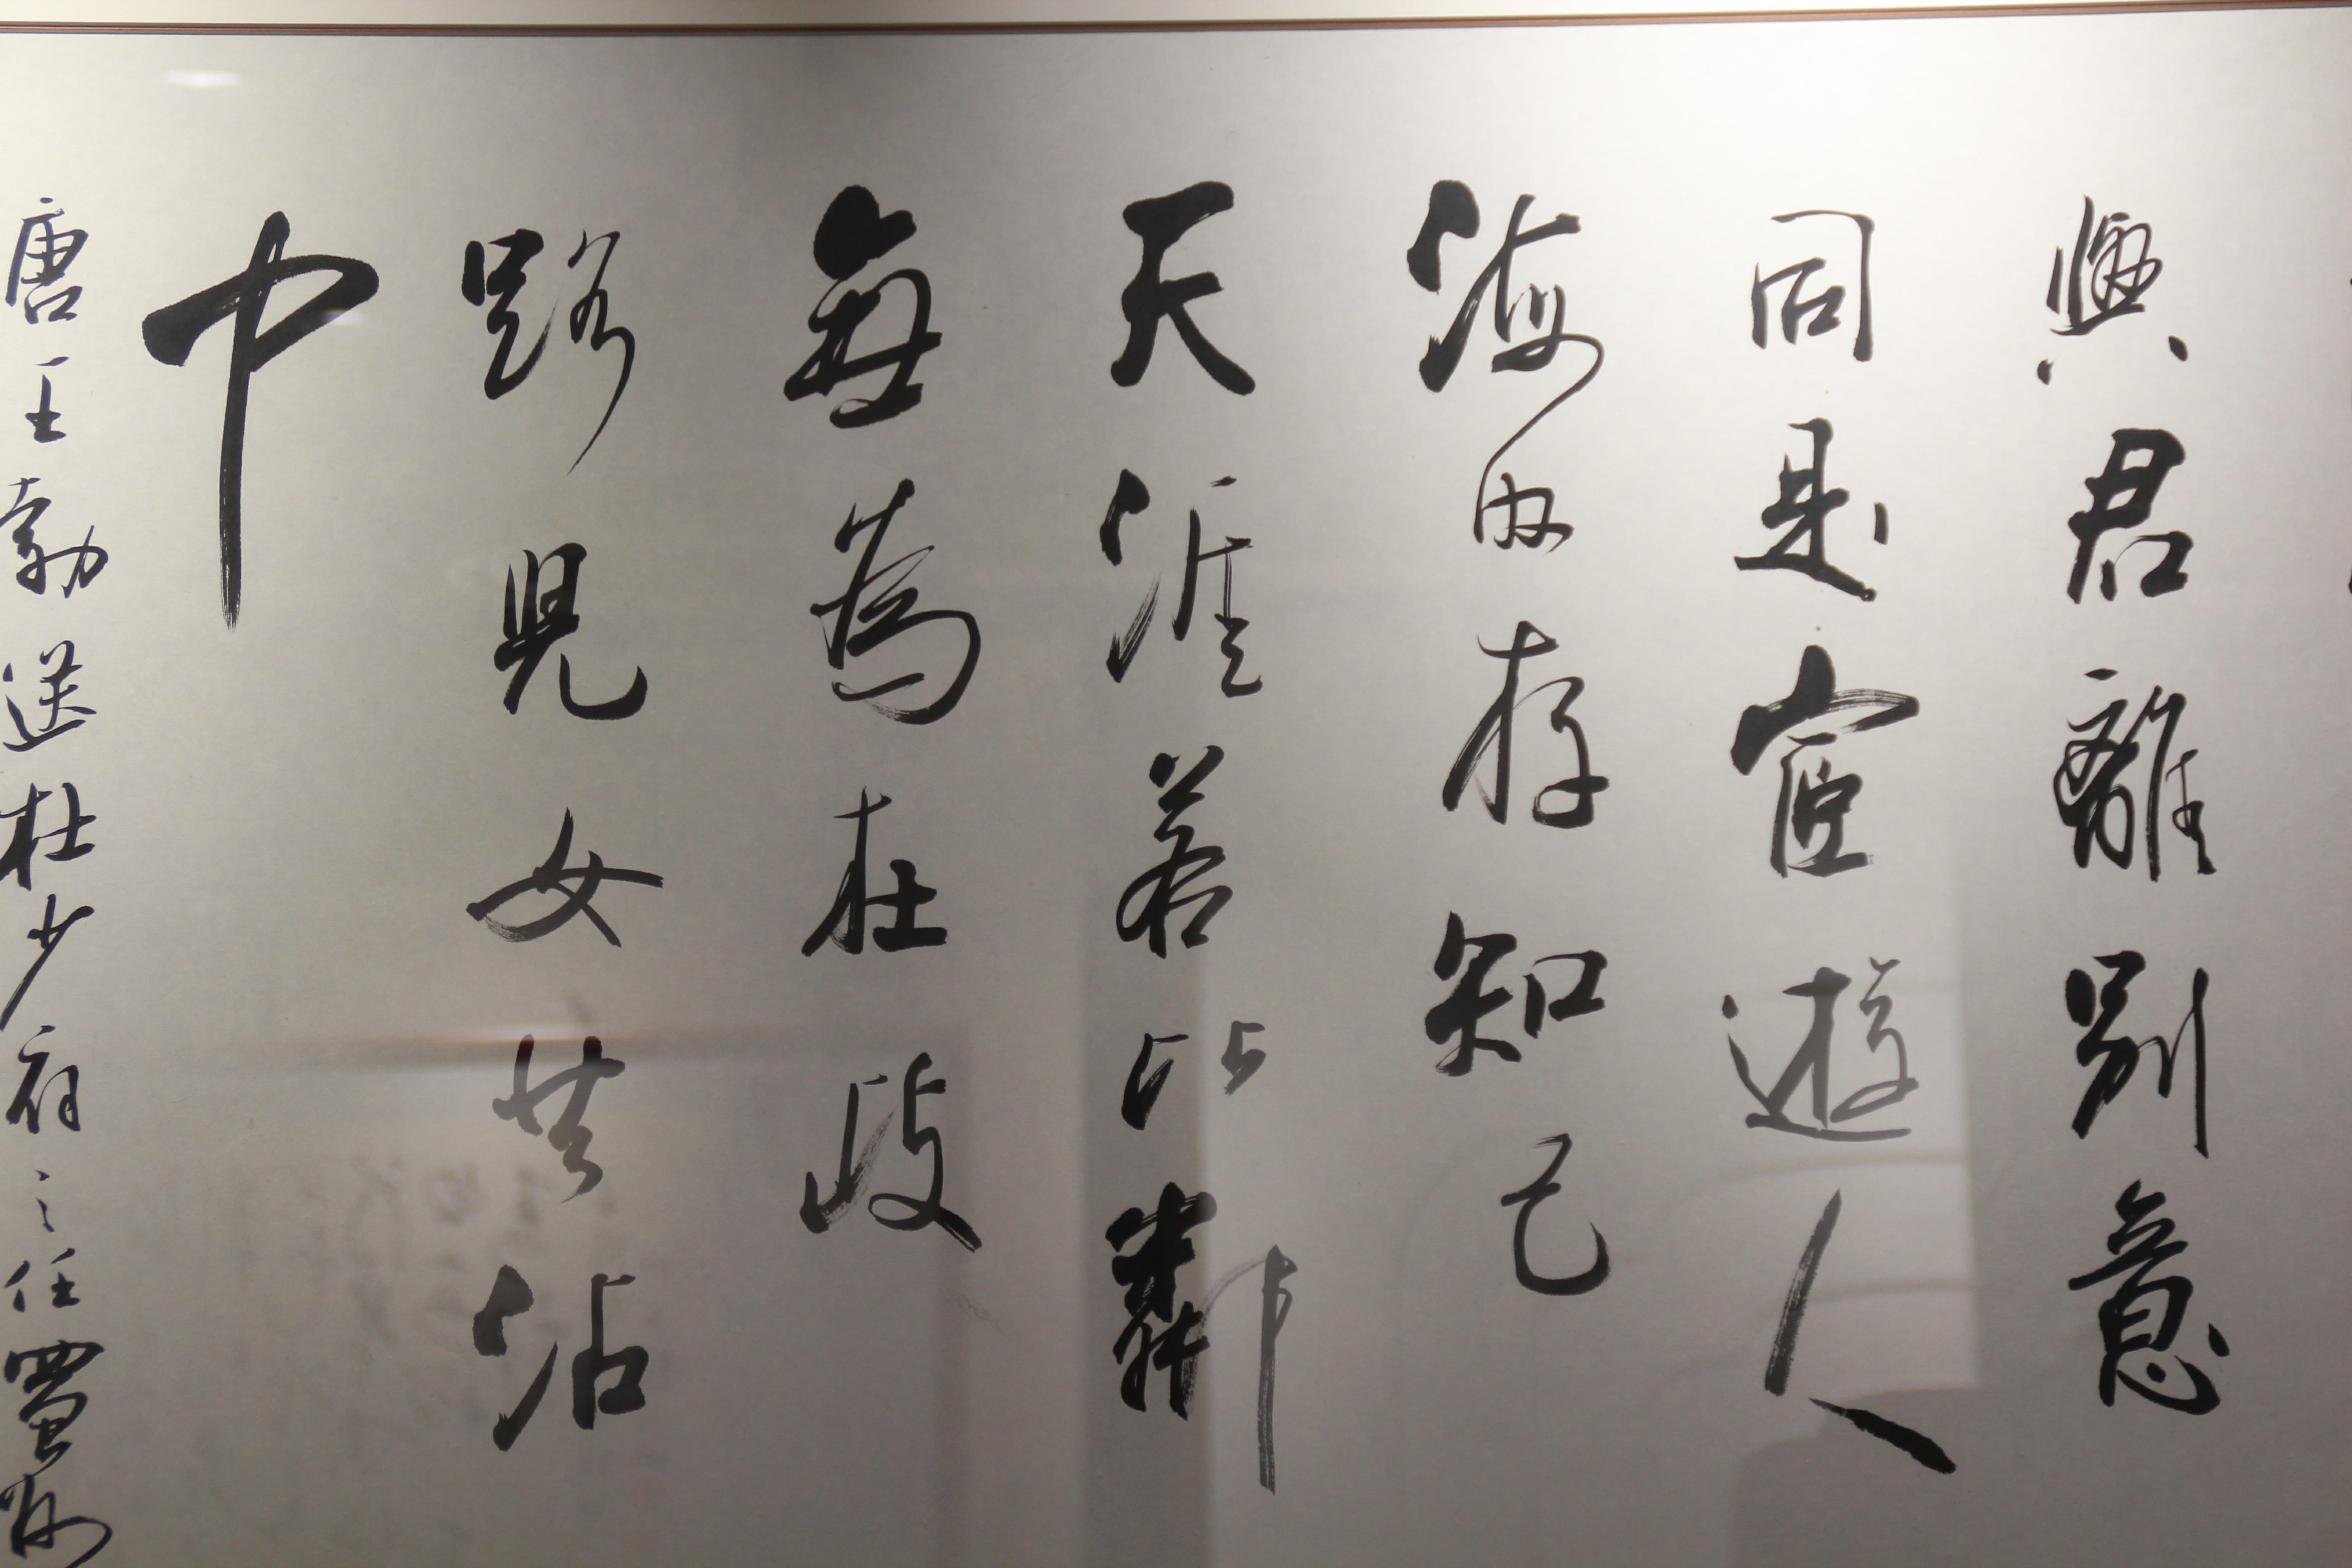 與君離別意
同是宦遊人
海內存知己
天涯若比鄰
無為在歧
路兒女共沾
巾
唐王勃送杜少府之任蜀州